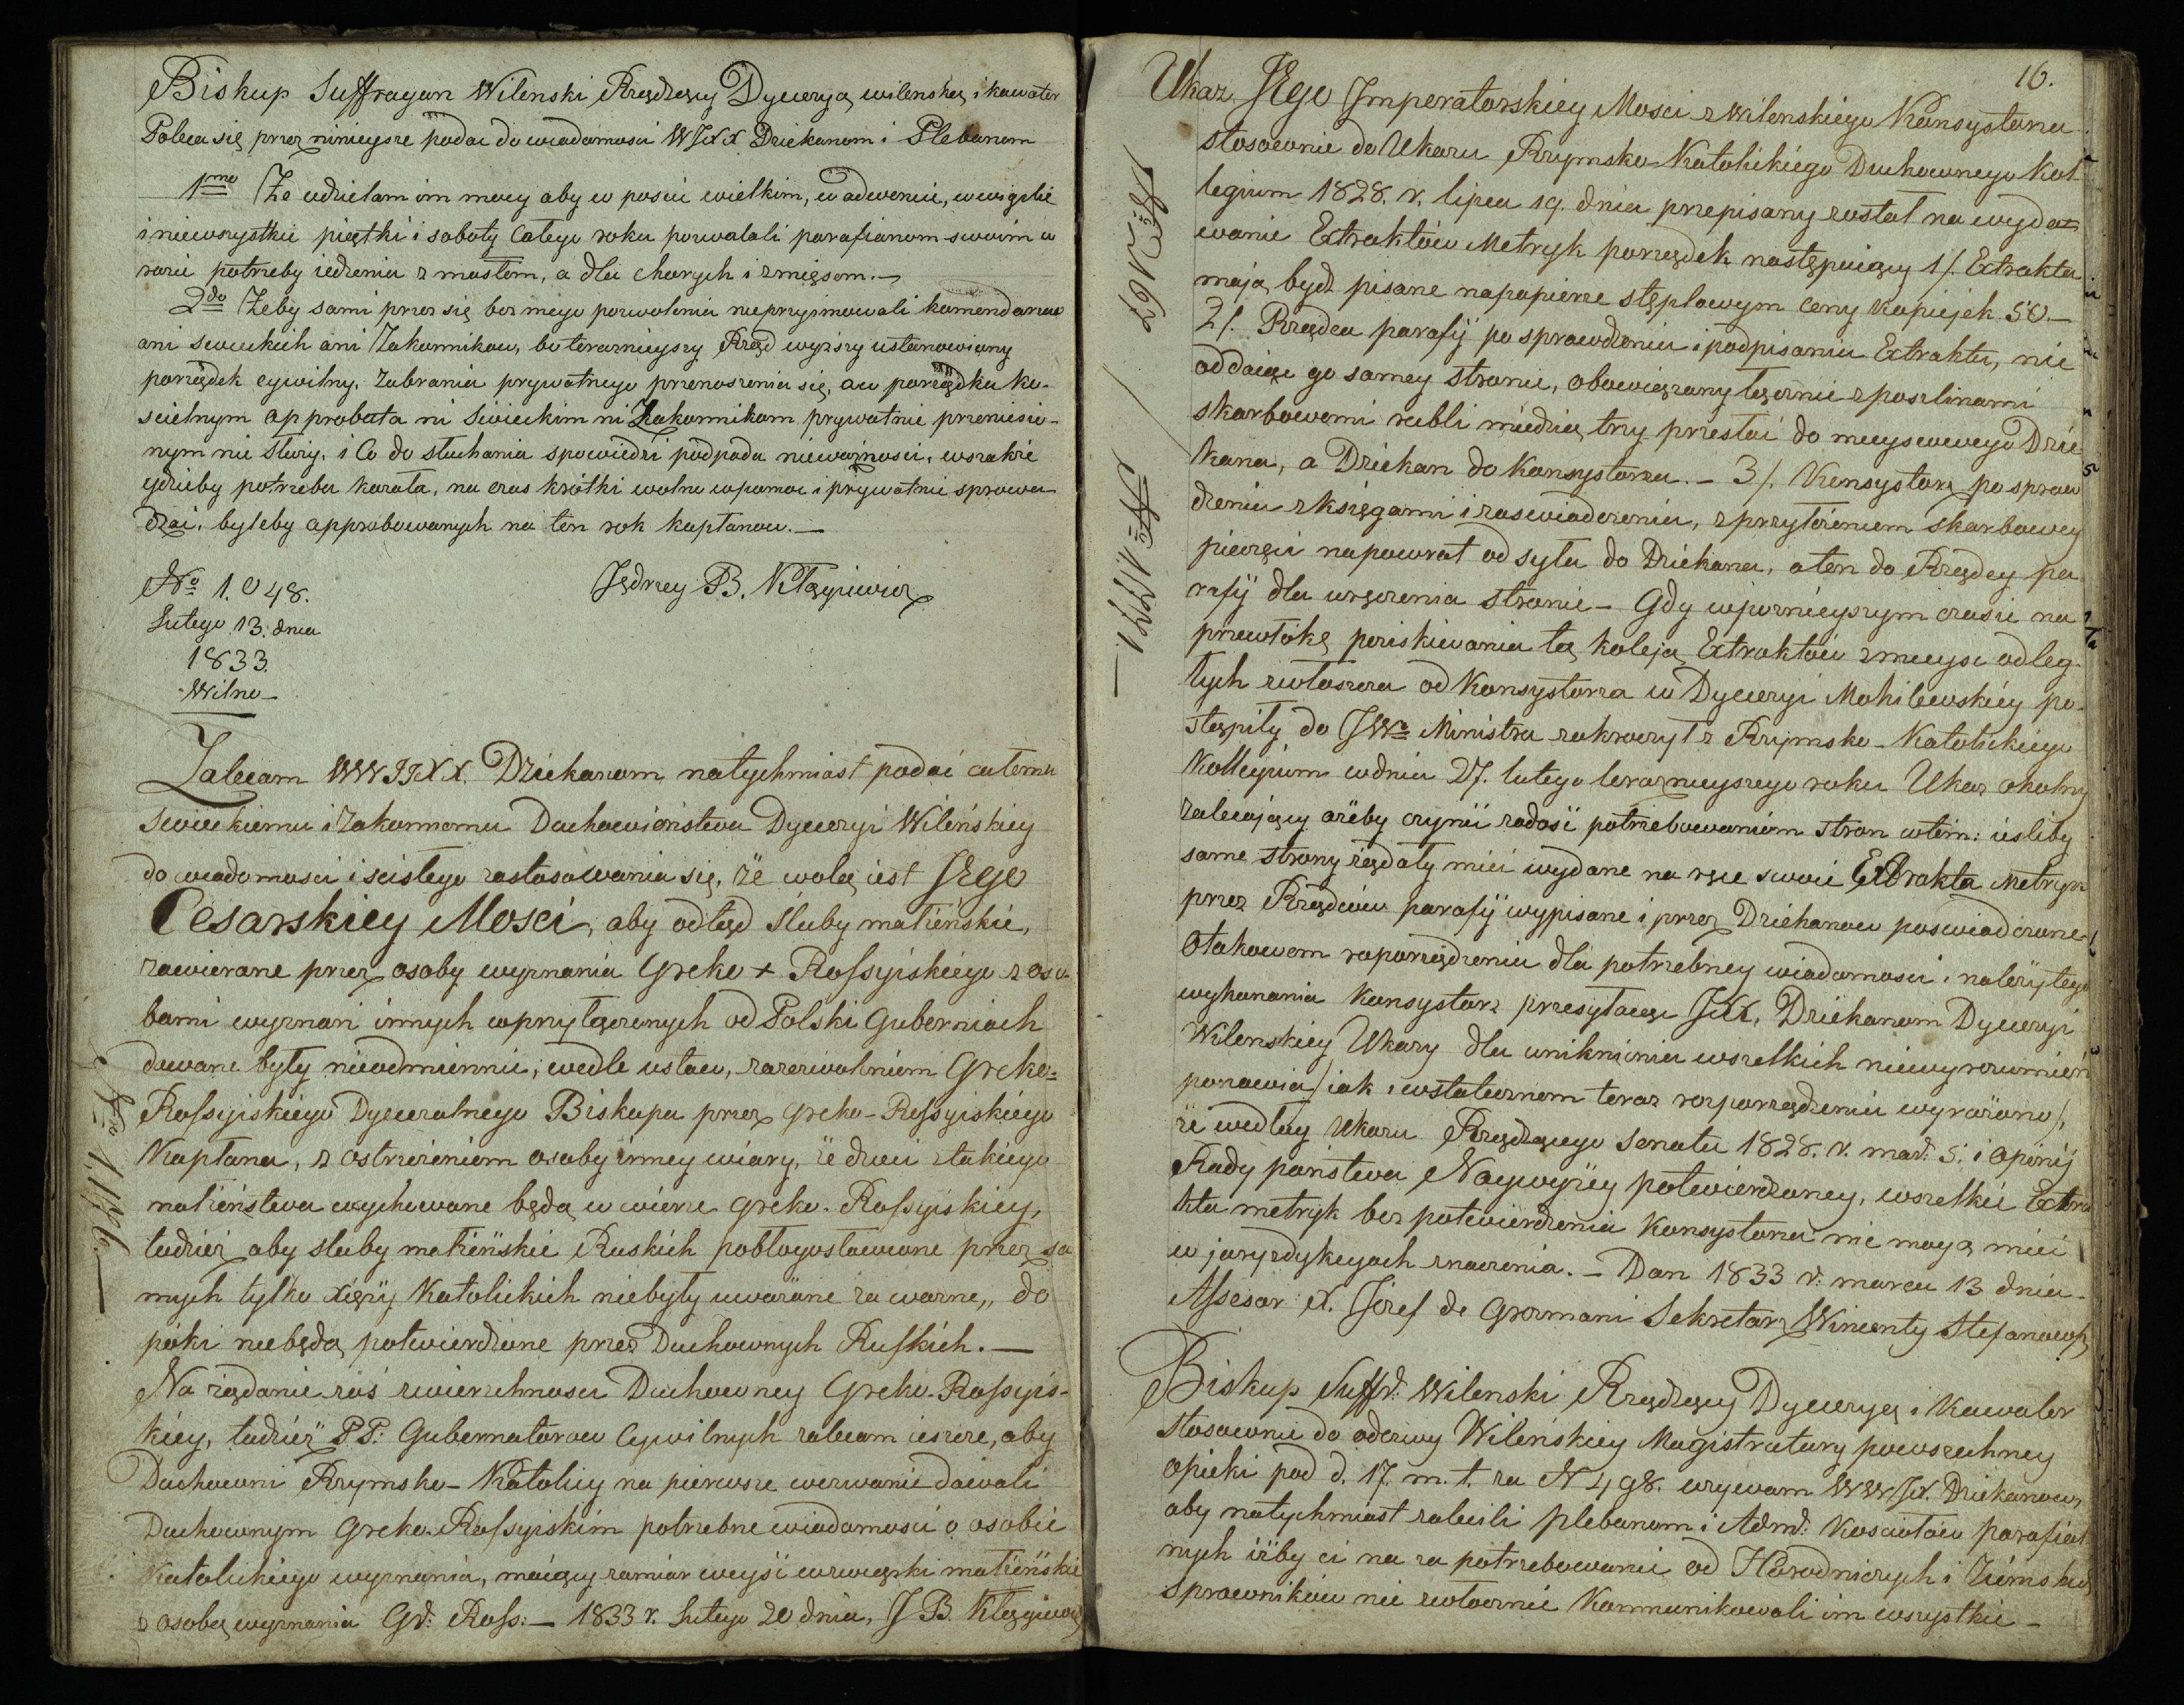 Biskup Suffragan Wilenski Rządzący Dyecezyą wilenską i kawaler
Poleca się przez ninieysze podać do wiadomości WJXX Dziekanom i Plebanom
1mo Że udzielam im mocy aby w poście wielkim, w adwencie, w wigilie
i niewszystkie piątki i soboty całego roku pozwalali parafianom swoim w
razie potrzeby iedzenia z masłem, a dla chorych i z mięsem.—
2do Żeby sami przez się bez mego pozwolenia nieprzyimowali komendarzow
ani swieckich ani Zakonnikow, bo teraznieyszy Rząd wyższy ustanowiony
porządek cywilny, zabrania prywatnego przenoszenia się, a w porządku ko-
scielnym approbata ni Swieckim ni Zakonnikom prywatnie przeniesio-
nym nie służy, i Co do słuchania spowiedzi podpada nieważnosci, wszakże
gdzieby potrzeba kazała, na czas krótki wolno w pomoc i prywatnie sprowa-
dzać, byleby approbowanych na ten rok kapłanow.—
No 1.048.
Lutego 13. dnia
1833.
Wilno—
Jędrzey B. Kłągiewicz
Zalecam WWJJXX. Dziekanom natychmiast podać całemu
swieckiemu i Zakonnemu Duchowieństwu Dyecezyi Wileńskiey
do wiadomosci i scisłego zastosowania się, że wolą iest JEgo
Cesarskiey Mości, aby odtąd śluby małżeńskie,
zawierane przez osoby wyznania Greko + Rossyiskiego z oso-
bami wyznań innych w przyłączonych od Polski Guberniach
dawane były nieodmiennie, wedle ustaw, za zezwoleniem Greko=
Rossyiskiego Dyecezalnego Biskupa przez Greko-Rossyiskiego
Kapłana, z ostrzeżeniem osoby inney wiary, że dzieci z takiego
małżeństwa wychowane będą w wierze Greko-Rossyiskiey,
tudzież aby sluby małżeńskie Ruskich pobłogosławione przez sa
mych tylko xięży Katolickich niebyły uważane za ważne, do
póki niebędą potwierdzone przez Duchownych Ruskich.—
Na żądanie zaś zwierzchnosci Duchowney Greko-Rossyis-
kiey, tudzież PP. Gubernatorow Cywilnych zalecam ieszcze, aby
Duchowni Rzymsko-Katoliccy na pierwsze wezwanie dawali
Duchownym Greko-Rossyiskim potrzebne wiadomosci o osobie
Katolickiego wyznania, maiącey zamiar weyść w związki małżeńskie
z osobą wyznania Gr: Ross:— 1833 r. Lutego 20 dnia, J B. Kłągiewicz
No 1,146.—
16.
Ukaz JEgo Imperatorskiey Mosci z Wilenskiego Konsystorza
stosownie do Ukazu Rzymsko-Katolickiego Duchownego Kol-
legium 1828. r. lipca 19. dnia przepisany został na wyda-
wanie Extraktów Metryk porządek następuiący 1/. Extrakta
mają bydź pisane na papierze stęplowym ceny kopiejek 50.—
2/. Rządca parafij po sprawdzeniu i podpisaniu Extraktu, nie
oddaiąc go samey stronie, obowiązany łącznie z poszlinami
skarbowemi rubli miedzią trzy przesłać do mieyscowego Dzie
kana, a Dziekan do Konsystorza.— 3/. Konsystorz po spraw
dzeniu z księgami i zaswiadczeniu, z przyłożeniem skarbowey
pieczęci napowrat odsyła do Dziekana, a ten do Rządcy pa
rafij dla wręczenia stronie— Gdy w poznieyszym czasie na
przewłokę poziskiwania tą koleją Extraktów z mieysc odleg-
łych zwłaszcza od Konsystorza w Dyecezyi Mohilewskiey po-
stąpiły do JWo Ministra zakroczył z Rzymsko-Katolickiego
Kollegium w dniu 27. lutego teraznieyszego roku Ukaz okolny
zalecaiący ażeby czynić zadość potrzebowaniom stron w tem: iesliby
same strony żądały mieć wydane na ręce swoie Extrakta Metryk
przez Rządców parafij wypisane i przez Dziekanow poswiadczone
O takowem rozporządzeniu dla potrzebney wiadomosci i należytego
wykonania Konsystorz przesyłaiąc JXX, Dziekanom Dyecezyi
Wilenskiey Ukazy dla uniknienia wszelkich niewyrozumień
ponawia /iak i w statecznem teraz rozporządzeniu wyrażono/,
że według Ukazu Rządzącego Senatu 1828. r. mar: 5. i opinij
Rady państwa Naywyżey potwierdzoney, wszelkie Extra
kta metryk bez potwierdzenia Konsystorza nie mogą mieć
w juryzdykcyach znaczenia.— Dan 1833 r. marca 13 dnia
Assesor X. Jozef de Gozmani Sekretarz Wincenty Stefanowicz
No 1221.—
Biskup Suffr: Wilenski Rządzący Dyecezyą i Kawaler
Stosownie do odezwy Wileńskiey Magistratury powszechney
opieki pod d. 17. m. t. za N 498. wzywam WWJX. Dziekanow,
aby natychmiast zalecili plebanom i Adm: kosciołów parafial
nych iżby ci na zapotrzebowanie od Horodniczych i Ziemskich
sprawników nie zwłocznie kommunikowali im wszystkie—